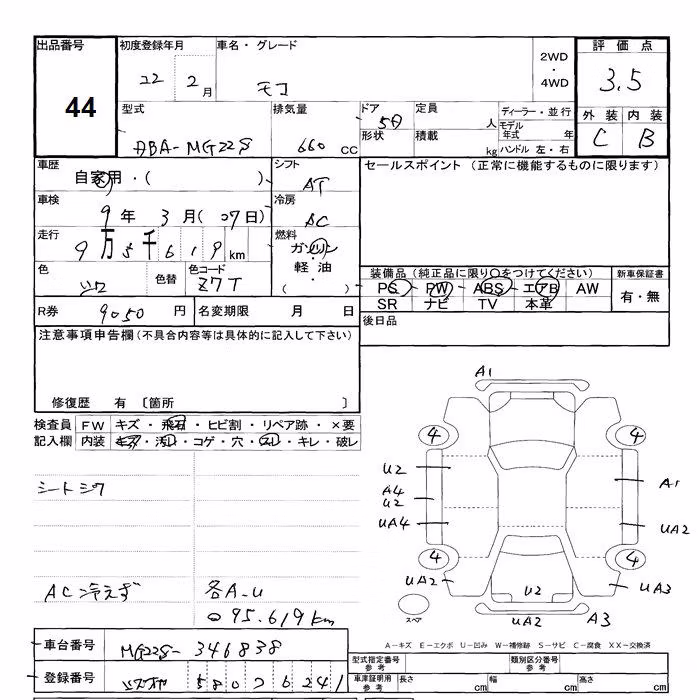 出品番号
44
初度登録年月
22 2月
車名・グレード
モコ
2WD
・
4WD
評価点
3.5
型式
ABA-MG22S
排気量
660 CC
ドア
5D
形状
定員
人
積載
kg
ディーラー・並行
モデル年式 年
ハンドル 左・右
外装 内装
C B
車歴
自家用・( )
シフト
AT
セールスポイント(正常に機能するものに限ります)
車検
9年 3月(07日)
冷房
AC
走行
9万5千619km
燃料
ガソリン
・
軽油
( )
色
色替
色コード
Z7T
装備品(純正品に限り○をつけてください)
PS・PW・ABS・エアB AW
SR ナビ TV 本革
新車保証書
有・無
R券 9050円
名変期限 月 日
後日品
注意事項申告欄(不具合内容等は具体的に記入して下さい)
修復歴 有〔箇所 〕
検査員記入欄
FW キズ・飛石・ヒビ割・リペア跡・×要
内装 キズ・汚レ・コゲ・穴・スレ・キレ・破レ
シートシワ
AC冷えず
各A-U
95.619km
A1
4 4
U2
A4
U2
UA4
A1
UA2
4 4
UA2
U2
UA3
UA2
A3
スペア
A-キズ E-エクボ U-凹み W-補修跡 S-サビ C-腐食 XX-交換済
車台番号
MG22S-346838
登録番号
580 フ 6241
型式指定番号
参考
類別区分番号
参考
車庫証明用
参考
長さ cm
幅 cm
高さ cm